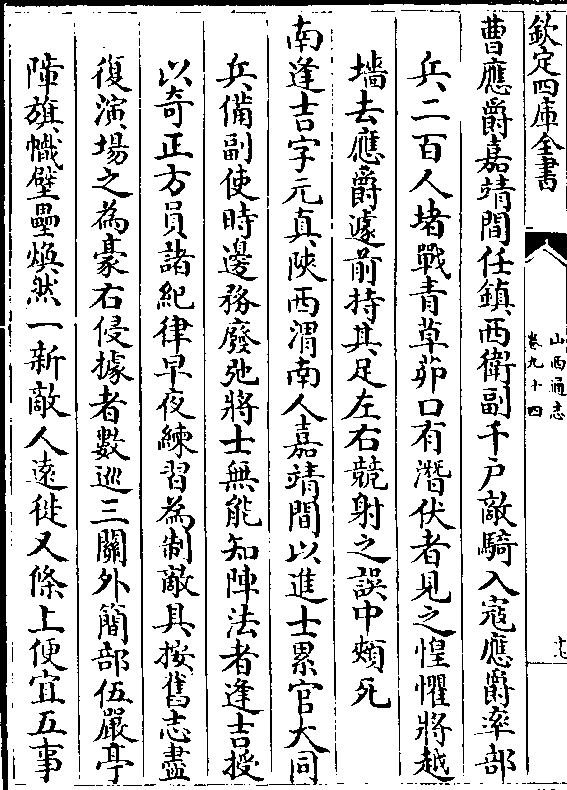 欽定四庫全書
山西通志
卷九十四
曹應爵嘉靖間任鎮西衛副千戶敵騎入寇應爵率部
兵二百人堵戰青草茆口有潛伏者見之惶懼將越
墻去應爵遽前持其足左右競射之誤中頰死
南逢吉字元真陜西渭南人嘉靖間以進士累官大同
兵備副使時邊務廢弛將士無能知陣法者逢吉授
以奇正方員諸紀律早夜練習為制敵具按舊志盡
復演場之為豪右侵據者數巡三關外簡部伍嚴亭
障旗幟壁壘煥然一新敵人遠徙又條上便宜五事